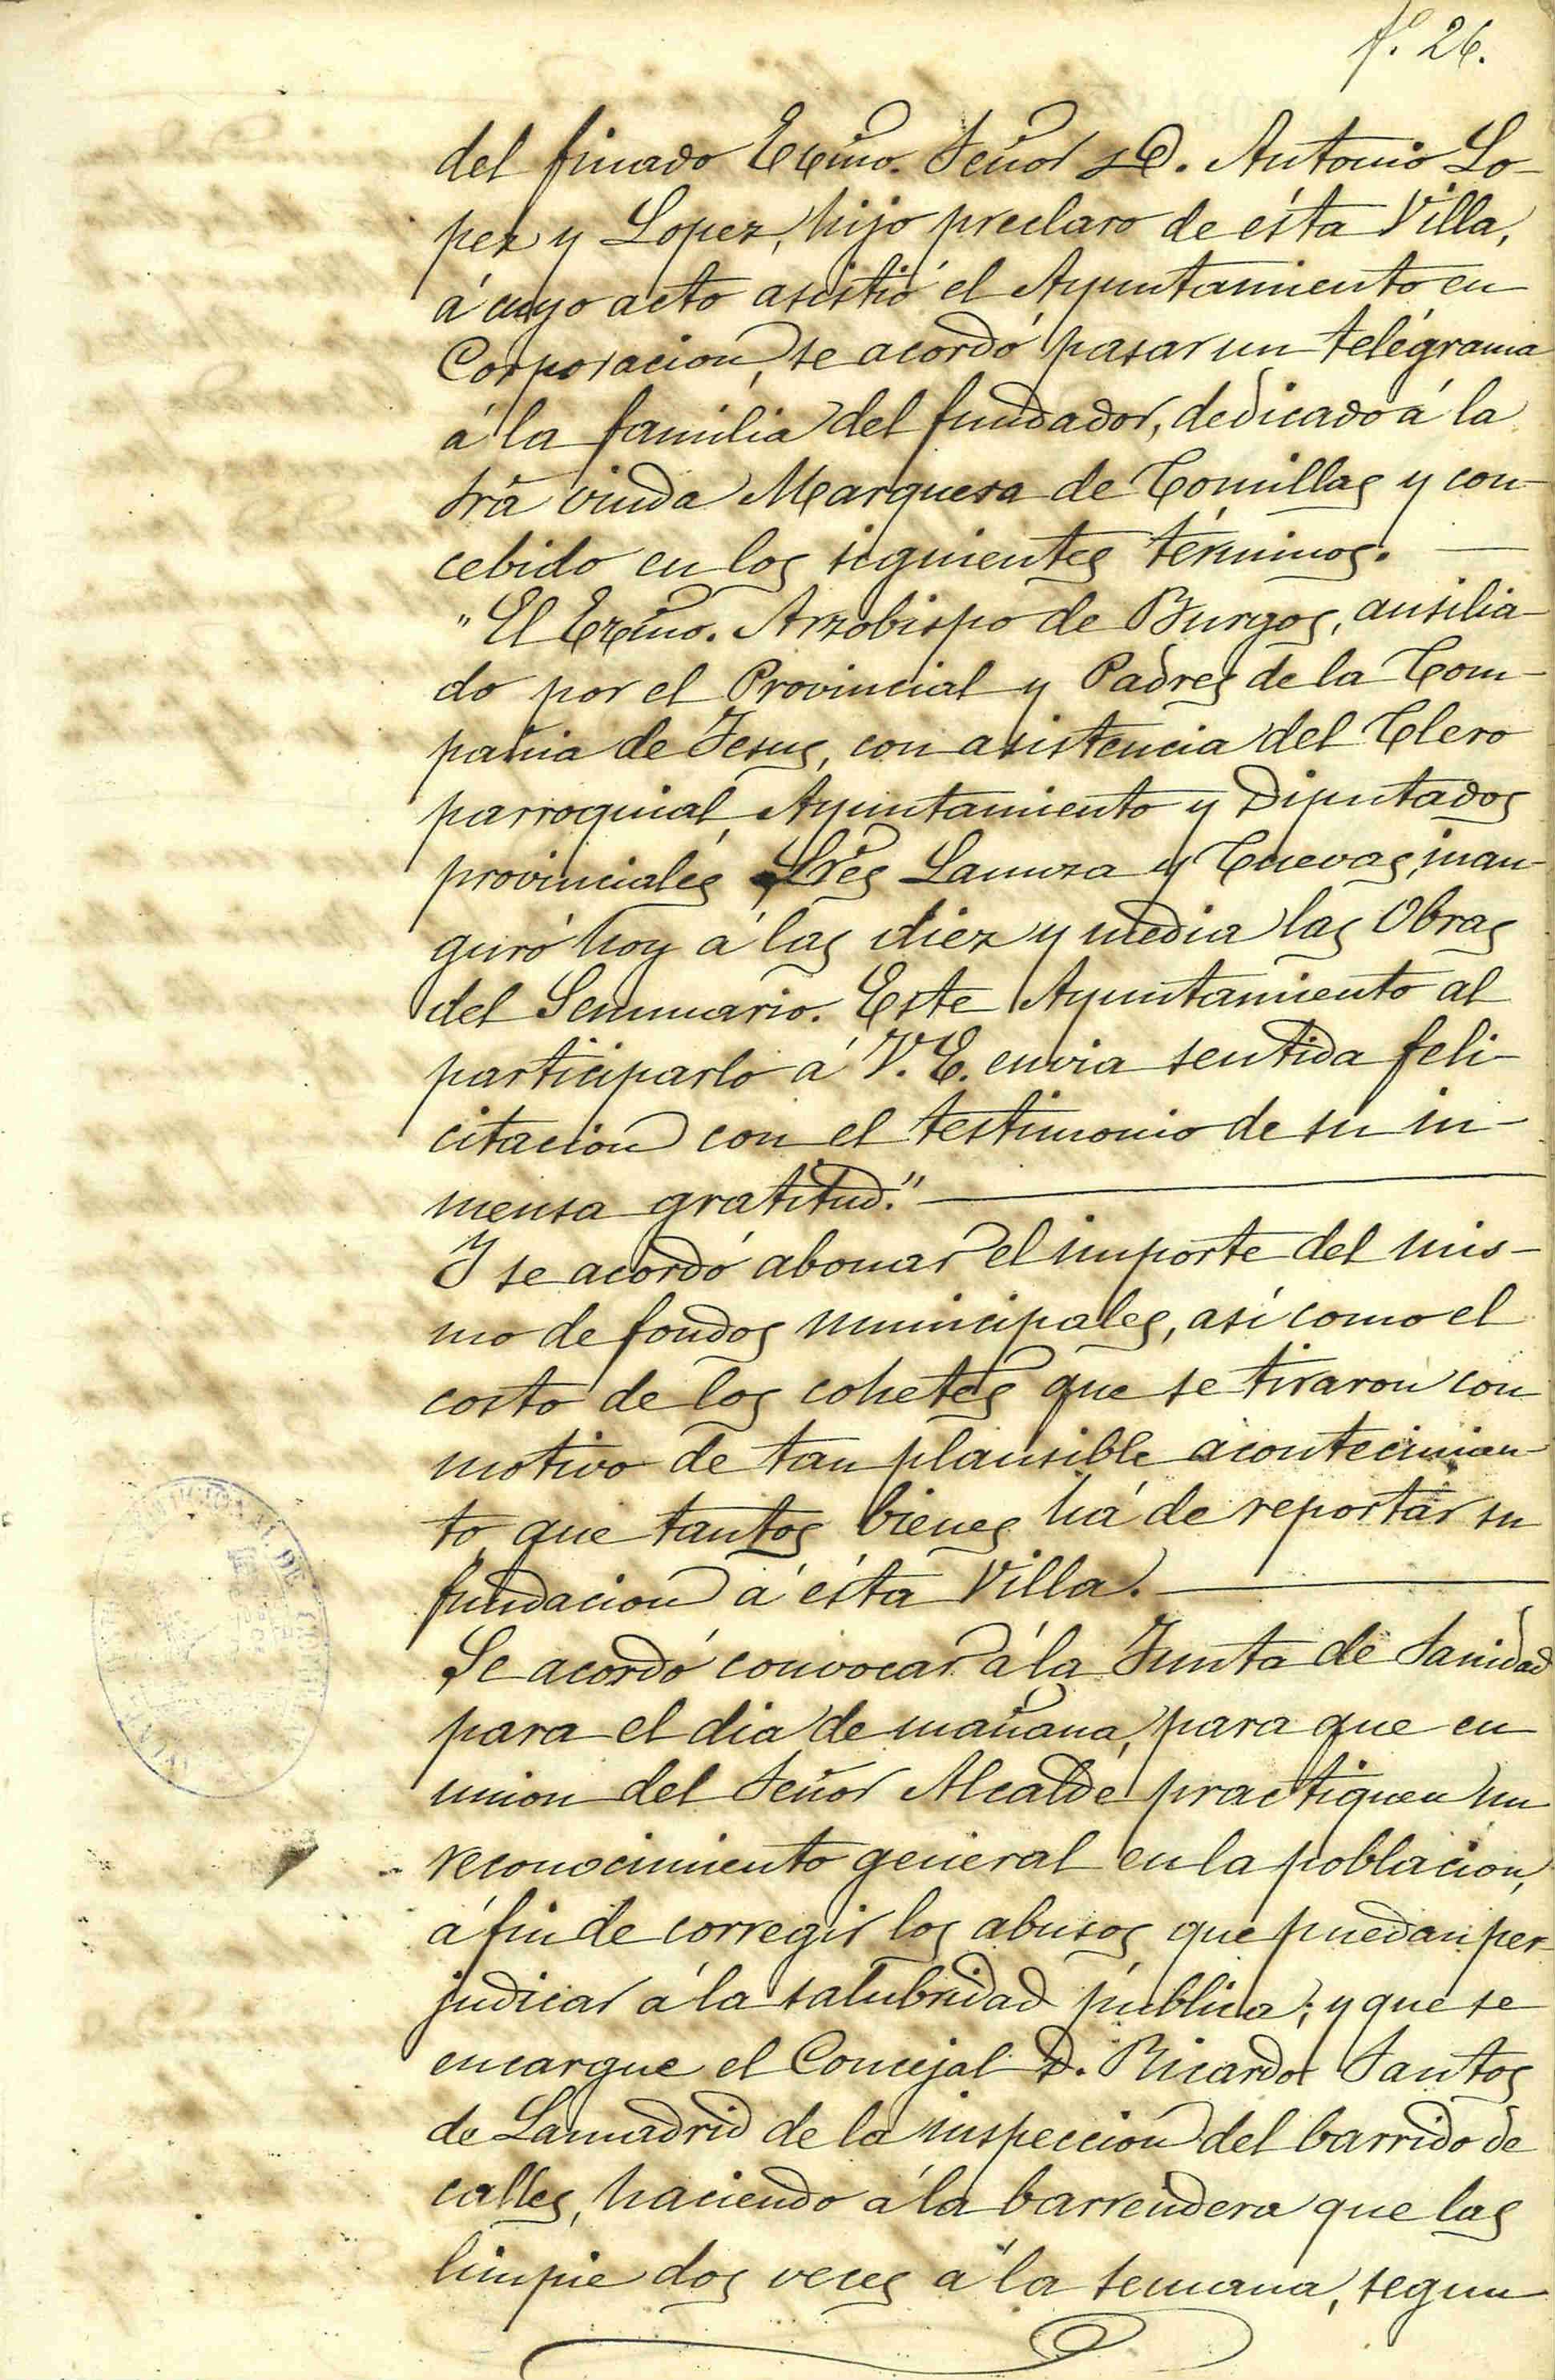 fº. 26.
del finado Excmo. Señor D. Antonio Lo-
pez y Lopez, hijo preclaro de ésta Villa,
á cuyo acto asistió el Ayuntamiento en
Corporacion, se acordó pasar un telégrama
á la familia del fundador, dedicado á la
Srã viuda Marquesa de Comillas y con-
cebido en los siguientes términos. —
"El Excmo. Arzobispo de Burgos, ausilia-
do por el Provincial y Padres de la Com-
pañia de Jesus, con asistencia del Clero
parroquial, Ayuntamiento y Diputados
provinciales Sres Lanuza y Cuevas, inau-
guró hoy á las diez y media las Obras
del Seminario. Este Ayuntamiento al
participarlo á V. E. envia sentida feli-
citacion con el testimonio de su in-
mensa gratitud." —
Y se acordó abonar el importe del mis-
mo de fondos municipales, asi como el
costo de los cohetes que se tiraron con
motivo de tan plausible acontecimien-
to, que tantos bienes há de reportar su
fundacion á ésta Villa. —
Se acordó convocar á la Junta de Sanidad
para el dia de mañana, para que en
union del Señor Alcalde practiquen un
reconocimiento general en la poblacion,
á fin de corregir los abusos que puedan per-
judicar á la salubridad pública; y que se
encargue el Concejal D. Ricardo Santos
de Lamadrid de la inspeccion del barrido de
calles, haciendo á la barrendera que las
limpie dos veces á la semana, segun